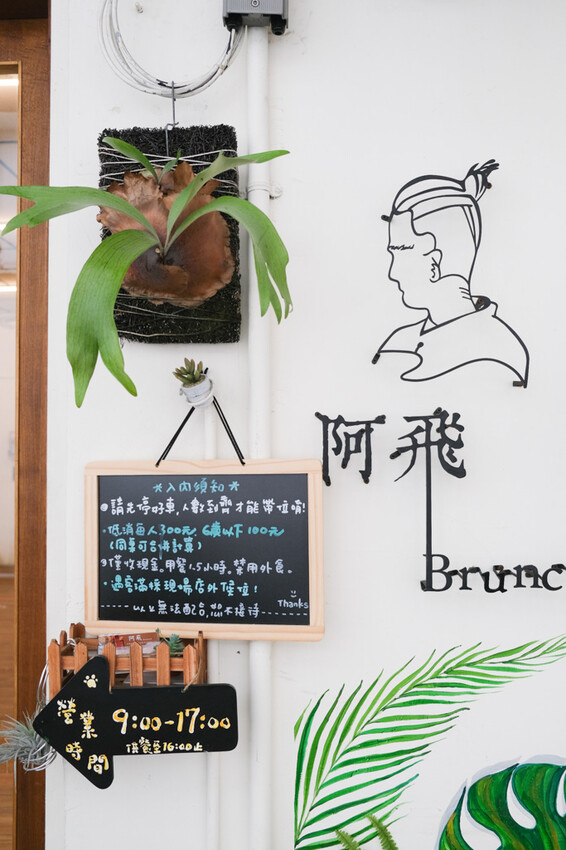 阿飛
Brunc
*入內須知*
●請先停好車,人數到齊才能帶位唷!
·低消每人300元,6歲以下100元
(同桌可合併計算)
●僅收現金。用餐1.5小時。禁用外食。
·遇客滿採現場店外候位!
Thanks
-----以上無法配合,恕不接待-----
營業時間
9:00-17:00
供餐至16:00止